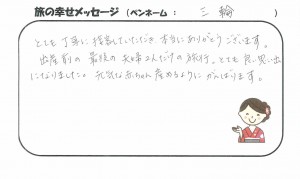 旅の幸せメッセージ (ペンネーム : 三輪 )
とても丁寧に接客していただき、本当にありがとうございます。
出産前の最後の夫婦2人だけの旅行。とても良い思い出
になりました。元気な赤ちゃん産めるようにがんばります。